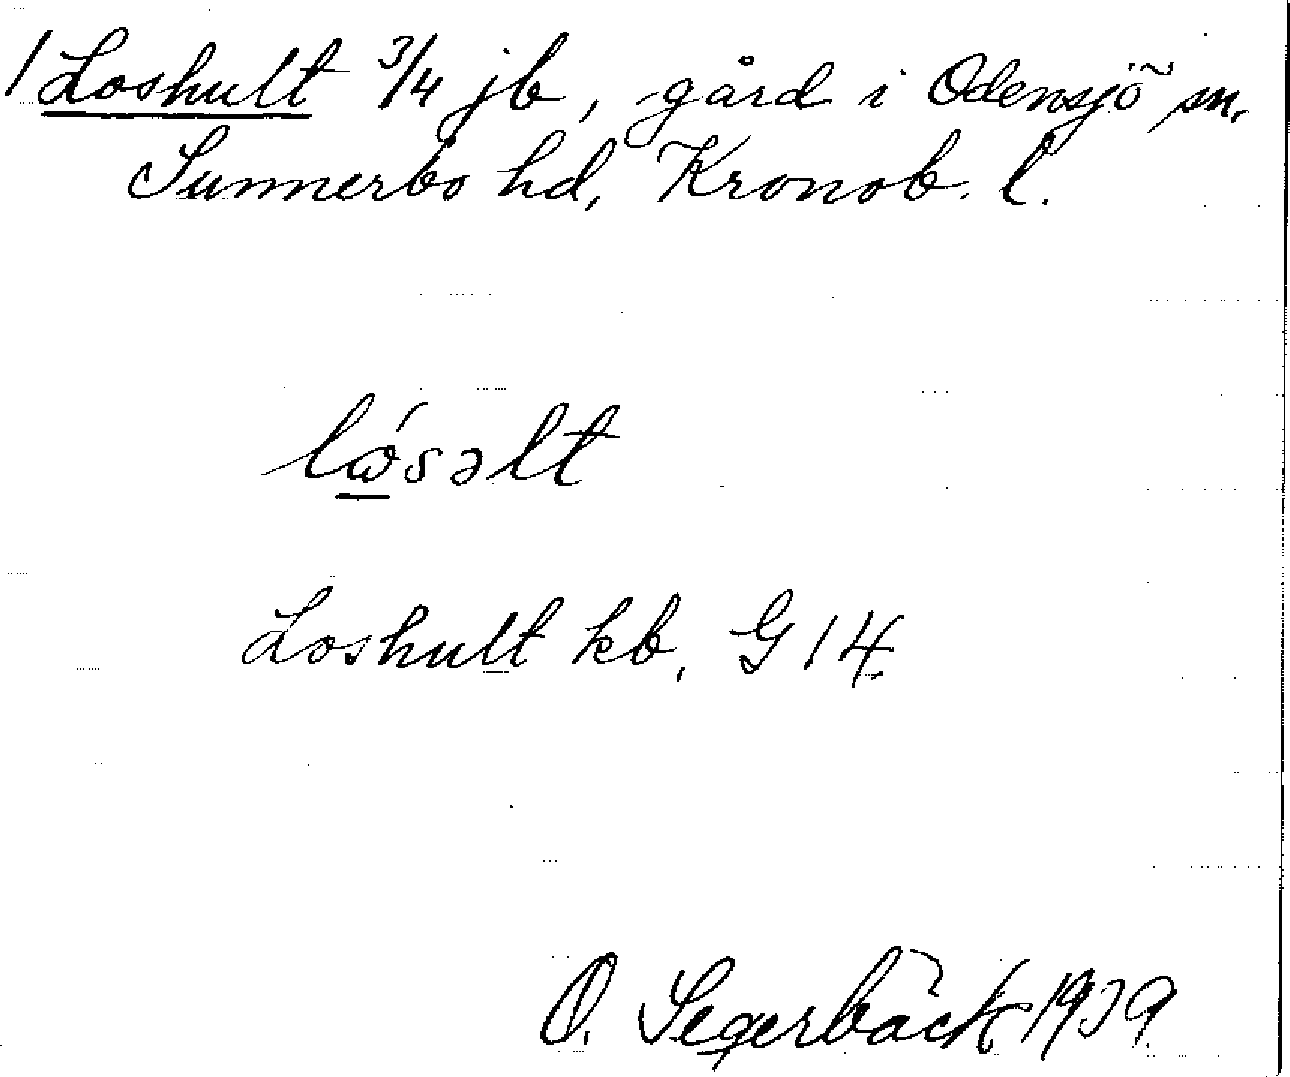 1 Loshult 3/4 jb, gård i Odensjö sn.
Sunnerbo hd, Kronob. l.
lώsəlt
Loshult kb. G 14.
O. Segerbäck 1939